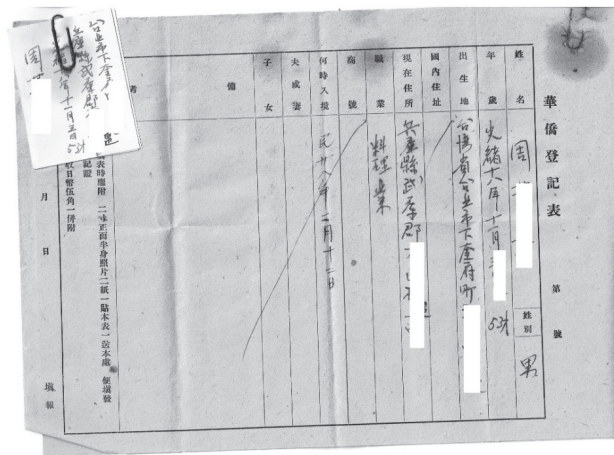 華僑登記表
第 號
姓名 周
性別 男
年歲 光緒十六年十一月 53才
出生地 台灣省台北市下奎府町
國內住址
現在住所 兵庫縣武庫郡
職業 料理業
商號
何時入境 民廿八年二月十二日
夫或妻
子女
備考
表時應附二寸正面半身照片二紙一貼本表一送本處 便填發
記證
收日幣伍角一併附
月 日 填報
台北市下奎府町
兵庫縣武庫郡
十一月 53才
周